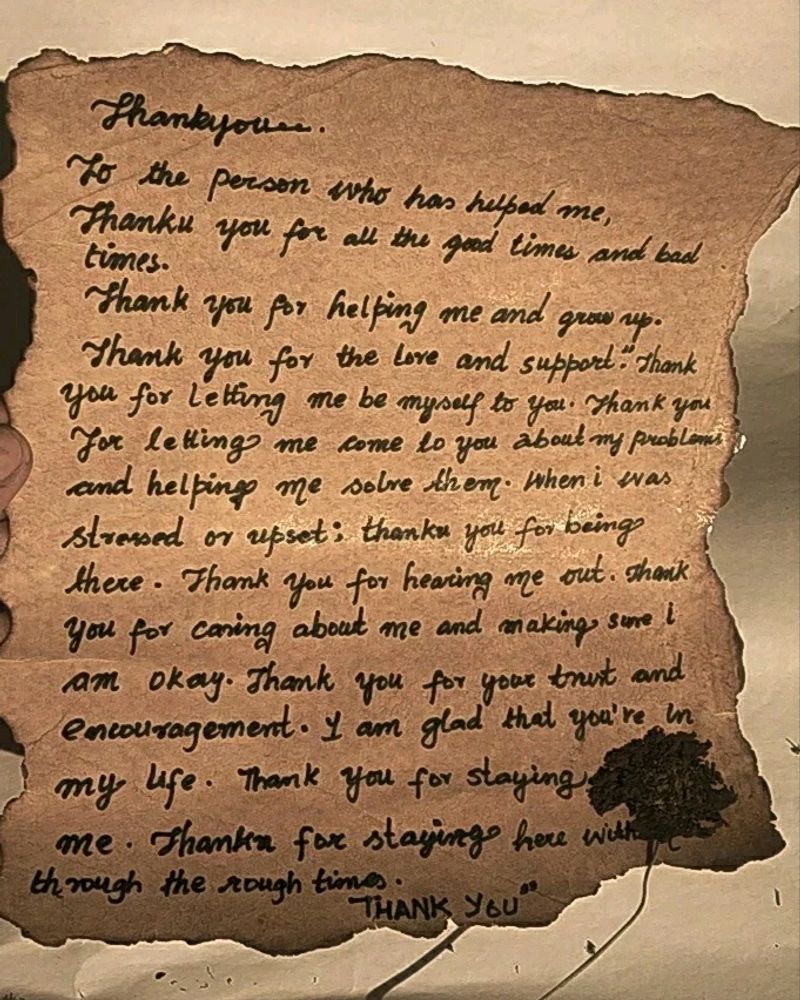 Thankyou....
To the person who has helped me,
Thanku you for all the good times and bad
times.
Thank you for helping me and grow up.
Thank you for the love and support." Thank
you for letting me be myself to you. Thank you
for letting me come to you about my problems
and helping me solve them. When i was
stressed or upset; thanku you for being
there. Thank you for hearing me out. Thank
you for caring about me and making sure i
am okay. Thank you for your trust and
encouragement. I am glad that you're in
my life. Thank you for staying
me. Thanku for staying here with
through the rough times.
THANK YOU"